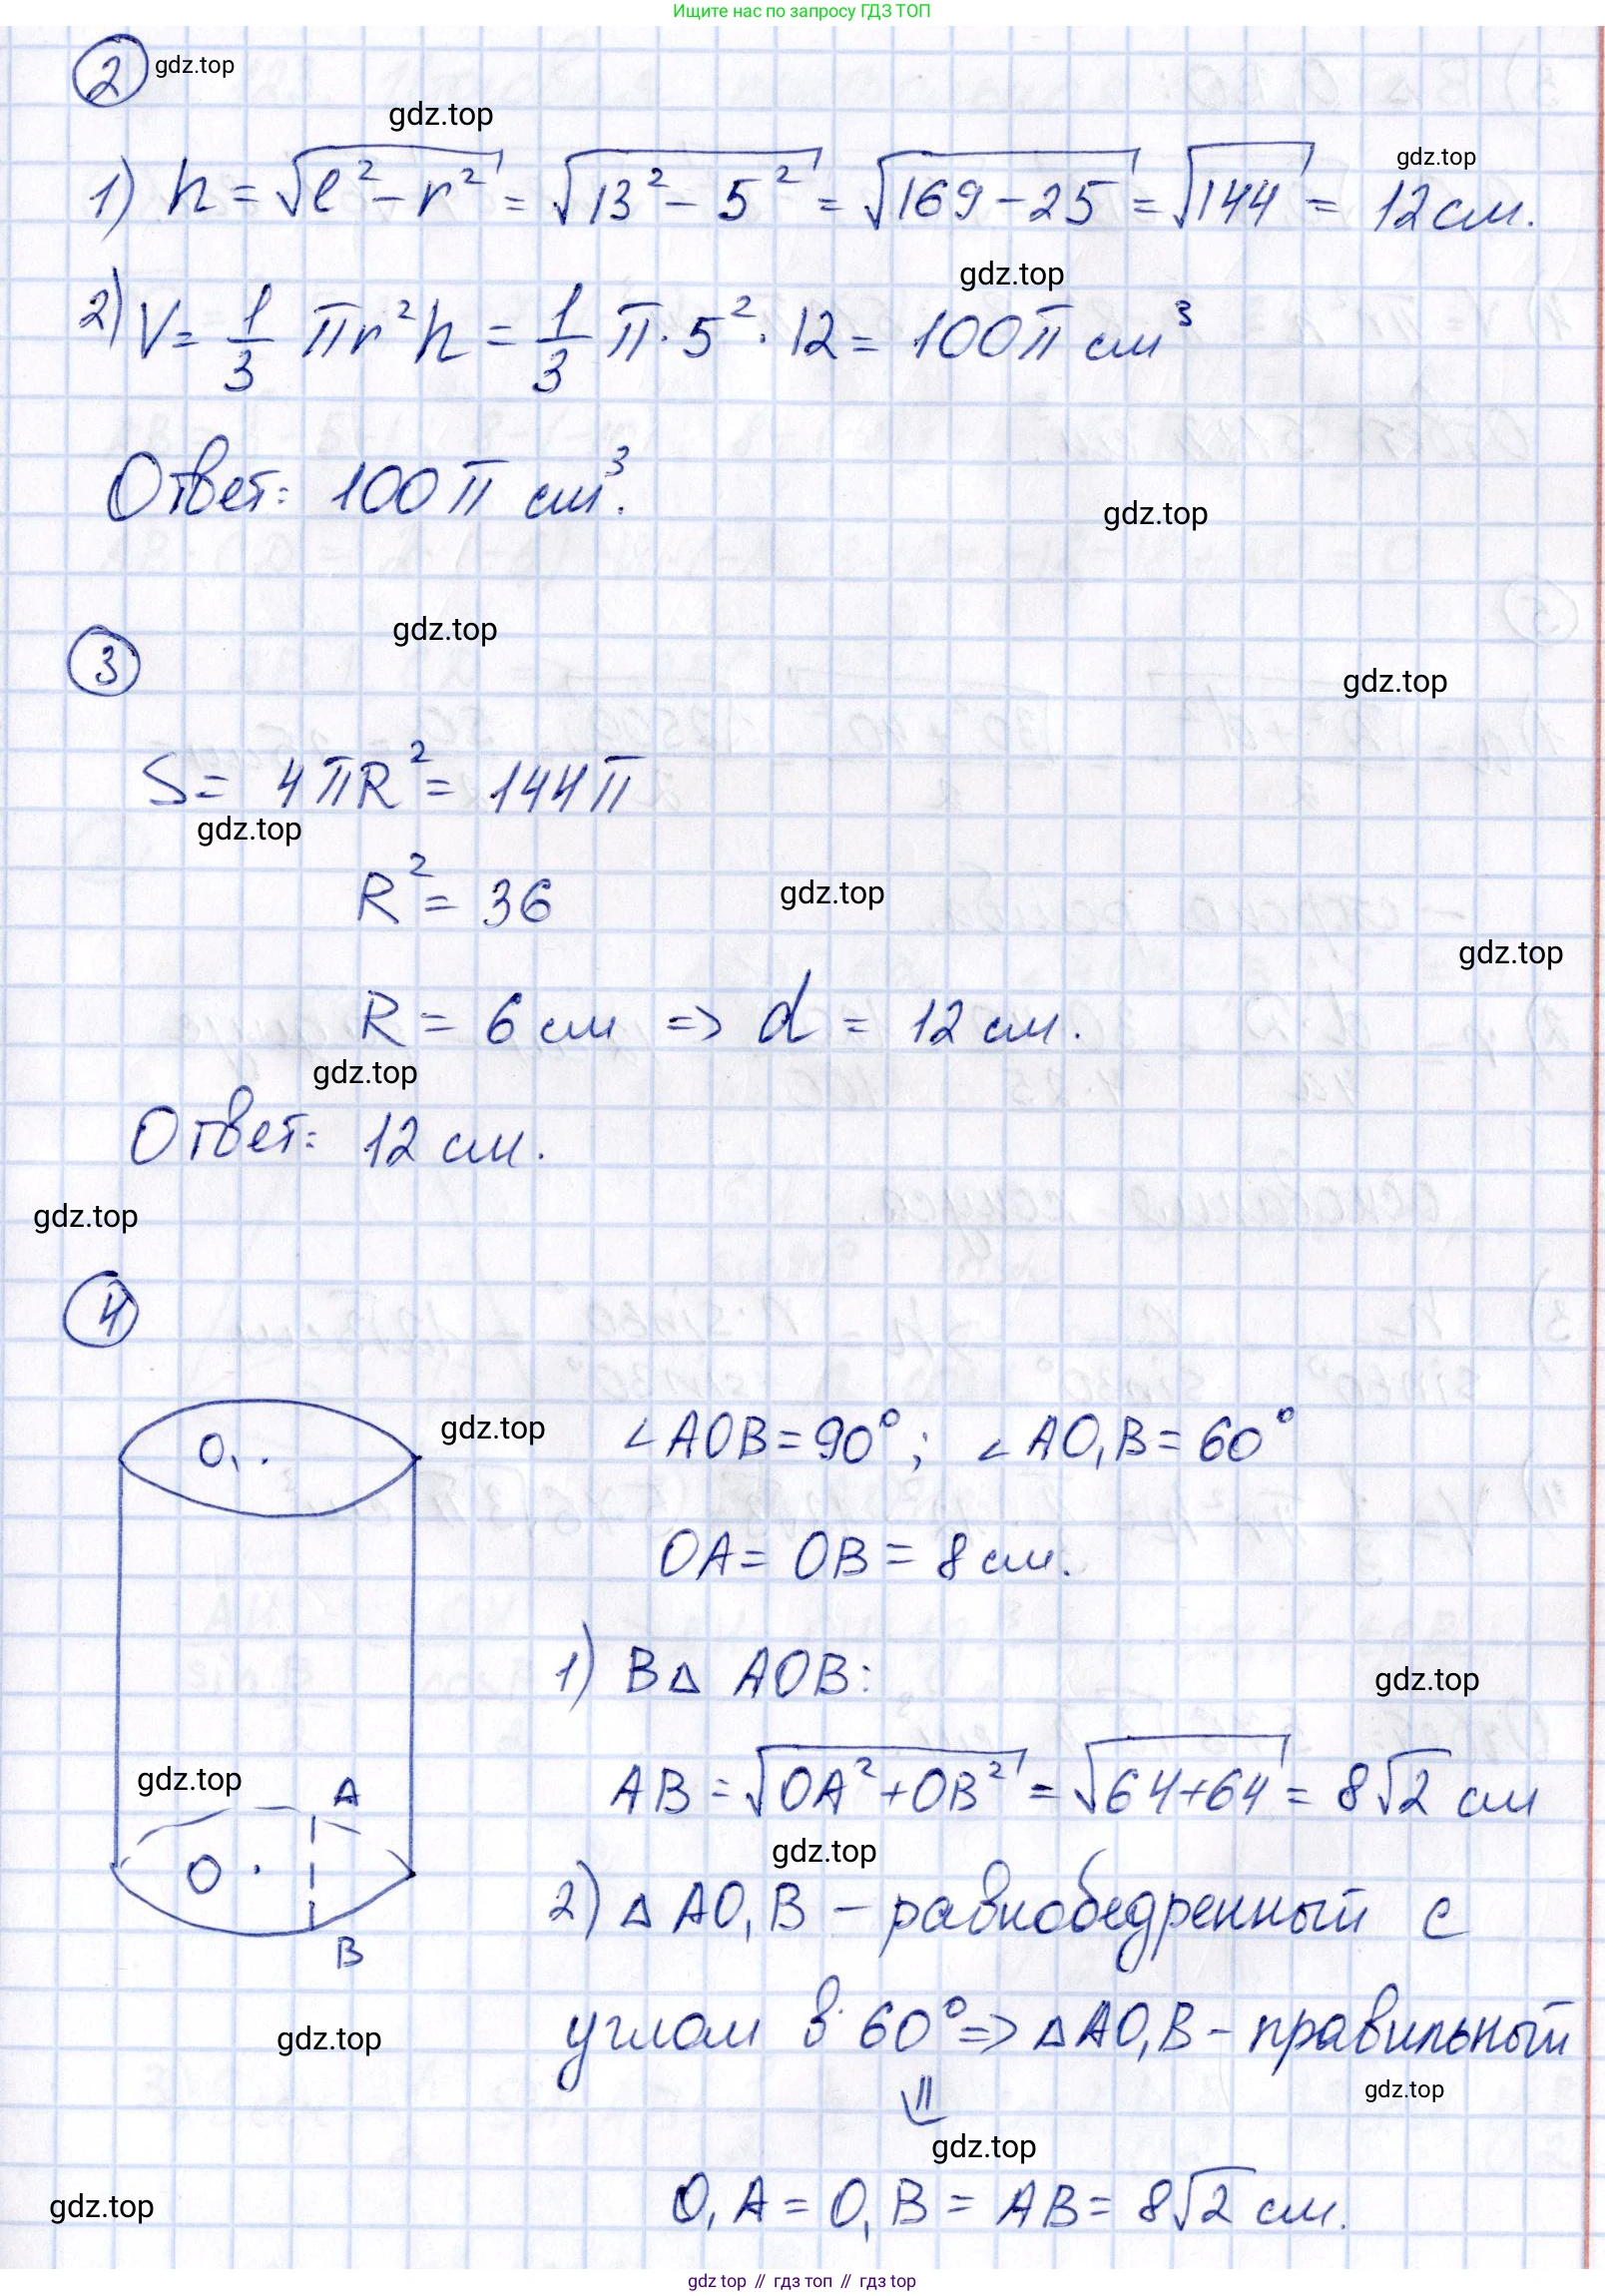 Ищите нас по запросу ГДЗ ТОП
2 gdz.top
gdz.top
1) h = √(l² − r²) = √(13² − 5²) = √(169 − 25) = √144 = 12 см.
gdz.top
gdz.top
2) V = 1/3 πr²h = 1/3 π · 5² · 12 = 100π см³
Ответ: 100π см³.
gdz.top
gdz.top
3
gdz.top
S = 4πR² = 144π
gdz.top
R² = 36
gdz.top
gdz.top
R = 6 см => d = 12 см.
gdz.top
Ответ: 12 см.
gdz.top
4
O₁
gdz.top
∠AOB = 90°; ∠AO₁B = 60°
OA = OB = 8 см.
1) В △ AOB:
gdz.top
gdz.top
A
AB = √(OA² + OB²) = √(64+64) = 8√2 см
gdz.top
O
B
2) △ AO₁B – равнобедренный с
углом в 60° => △AO₁B – правильный
gdz.top
gdz.top
⇓
gdz.top
gdz.top
O₁A = O₁B = AB = 8√2 см.
gdz top // гдз топ // гдз top